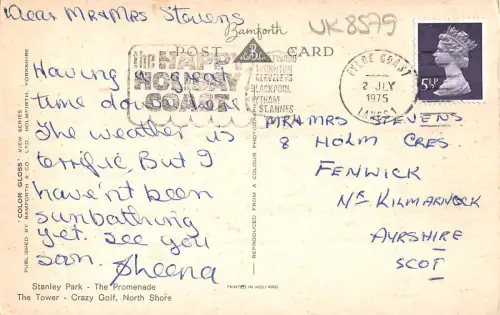 Dear Mr & Mrs Stevens
UK8579
Bamforth
POST CARD
the HAPPY
HOLIDAY
COAST
FLEETWOOD
THORNTON
CLEVELEYS
BLACKPOOL
LYTHAM
ST. ANNES
FYLDE COAST
2 JLY
1975
LANCS
5½P
Having a great
time down here
The weather is
terrific. But I
haven't been
sunbathing
yet. See you
soon. Sheena
MR & MRS STEVENS
8 HOLM CRES.
FENWICK
Nr KILMARNOCK
AYRSHIRE
SCOT
"COLOR GLOSS" VIEW SERIES
PUBLISHED BY BAMFORTH & CO. LTD. HOLMFIRTH, YORKSHIRE
REPRODUCED FROM A COLOUR PHOTOGRAPH
Stanley Park - The Promenade
The Tower - Crazy Golf, North Shore
PRINTED IN HOLLAND